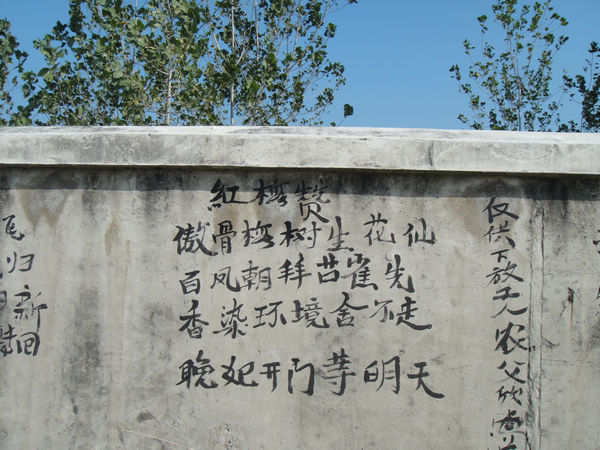 紅梅赞
傲骨梅树生花仙
百凤朝拜苔雀先
香染环境舍不走
晚妃开门等明天
仅供下放天人农父欣尚
尾归
新